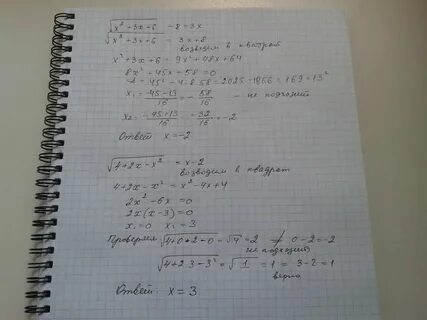 √x²+3x+6 - 8 = 3x
√x²+3x+6 = 3x+8
возводим в квадрат
x²+3x+6 = 9x²+48x+64
8x²+45x+58=0
D=45²-4·8·58=2025-1856=169=13²
x₁=(-45-13)/16=-58/16 - не подходит
x₂=(-45+13)/16=-32/16=-2
Ответ x=-2
√4+2x-x² = x-2
возводим в квадрат
4+2x-x²=x²-4x+4
2x²-6x=0
2x(x-3)=0
x₁=0 x₂=3
Проверяем √4+0·2-0=√4=2 ≠ 0-2=-2
не подходит
√4+2·3-3²=√1=1=3-2=1
верно
Ответ: x=3